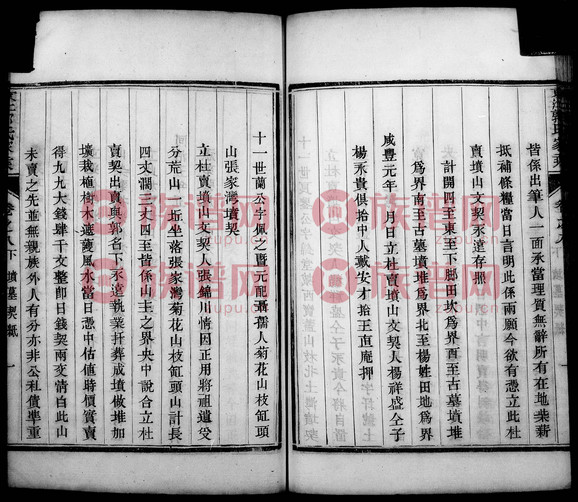 皆係出筆人一面承當理質無辭所有在地柴薪
抵補條糧當日言明此係兩願今欲有憑立此杜
賣墳山文契永遠存照
計開四至東至下腳田坎為界西至古墓墳堆
為界南至古墓墳堆為界北至楊姓田地為界
咸豐元年 月 日立杜賣墳山文契人楊祥盛仝子
楊永貴俱拾中人戴安才拾王直庵押
十一世蘭公字佩之暨元配蕭孺人菊花山枝缸頭
山張家灣墳契
立杜賣墳山文契人張錦川情因正用將祖遺受
分荒山一坵坐落張家灣菊花山枝缸頭山計長
四丈濶三丈四至皆係山主之界央中說合立杜
賣契出賣與郭名下永遠執業扦葬成墳做堆加
墳栽樹木遮蔭風水當日憑中估值時價實賣
得九九大錢肆千文整即日錢契兩交清白此山
未賣之先並無親族外人有分亦非公私債準重
卷之八下 墳墓契紙 一
族谱网